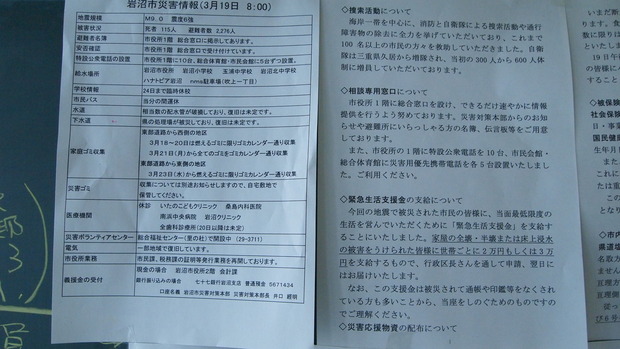 岩沼市災害情報(3月19日 8:00)
地震規模 M9.0 震度6強
被害状況 死者 115人 避難者数 2,276人
避難者名簿 市役所1階 総合窓口に掲示してあります。
安否確認 市役所1階 総合窓口で受け付けています。
特設公衆電話の設置 市役所1階に10台、総合体育館・市民会館に5台ずつ設置。
給水場所 岩沼市役所 岩沼小学校 玉浦中学校 岩沼北中学校
ハナトピア岩沼 nms駐車場(吹上一丁目)
学校情報 24日まで臨時休校
市民バス 当分の間運休
水道 相当数の配水管が破損しており、復旧は未定です。
下水道 県の処理場が被災しており、復旧は未定です。
家庭ゴミ収集
東部道路から西側の地区
3月18～20日は燃えるゴミに限りゴミカレンダー通り収集
3月21日(月)から全てのゴミをカレンダー通り収集
東部道路から東側の地区
3月23日(水)から燃えるゴミに限りゴミカレンダー通り収集
災害ゴミ 収集については別途お知らせしますので、自宅敷地で
保管してください。
医療機関 休診 いたのこどもクリニック 桑島内科医院
南浜中央病院 岩沼クリニック
全歯科診療所(20日以降は未定)
災害ボランティアセンター 総合福祉センター(里の杜)で開設中 (29-3711)
電気 一部地域で復旧しています。
市役所業務 市民課、税務課の証明等発行業務を再開しております。
義援金の受付 現金の場合 岩沼市役所2階 会計課
銀行振り込みの場合 七十七銀行岩沼支店 普通預金 5671434
口座名義 岩沼市災害対策本部 災害対策本部長 井口 經明
◇捜索活動について
海岸一帯を中心に、消防と自衛隊による捜索活動や通行
障害物の除去に全力を挙げていただいており、これまで
100名以上の市民の方々を救助していただきました。自衛
隊は三重県久居から増隊され、当初の300人から600人体
制に増員していただいております。
◇相談専用窓口について
市役所1階に総合窓口を設け、できるだけ速やかに情報
提供を行うよう努めております。災害対策本部からのお知
らせや避難所にいらっしゃる方の名簿、伝言板等をご用意
しております。
また、市役所の1階に特設公衆電話を10台、市民会館・
総合体育館に災害用優先携帯電話を各5台設置いたしまし
た。ご利用ください。
◇緊急生活支援金の支給について
今回の地震で被災された市民の皆様に、当面最低限度の
生活を営んでいただくために「緊急生活支援金」を支給す
ることにいたしました。家屋の全壊・半壊または床上浸水
の被害をうけられた皆様に世帯ごとに2万円もしくは3万
円を支給するもので、行政区長さんを通して申請、翌日に
はお届けいたします。
なお、この支援金は被災されて通帳や印鑑等をなくされ
ている方も多いことから、当座をしのぐためのものですの
でご理解ください。
◇災害応援物資の配布について